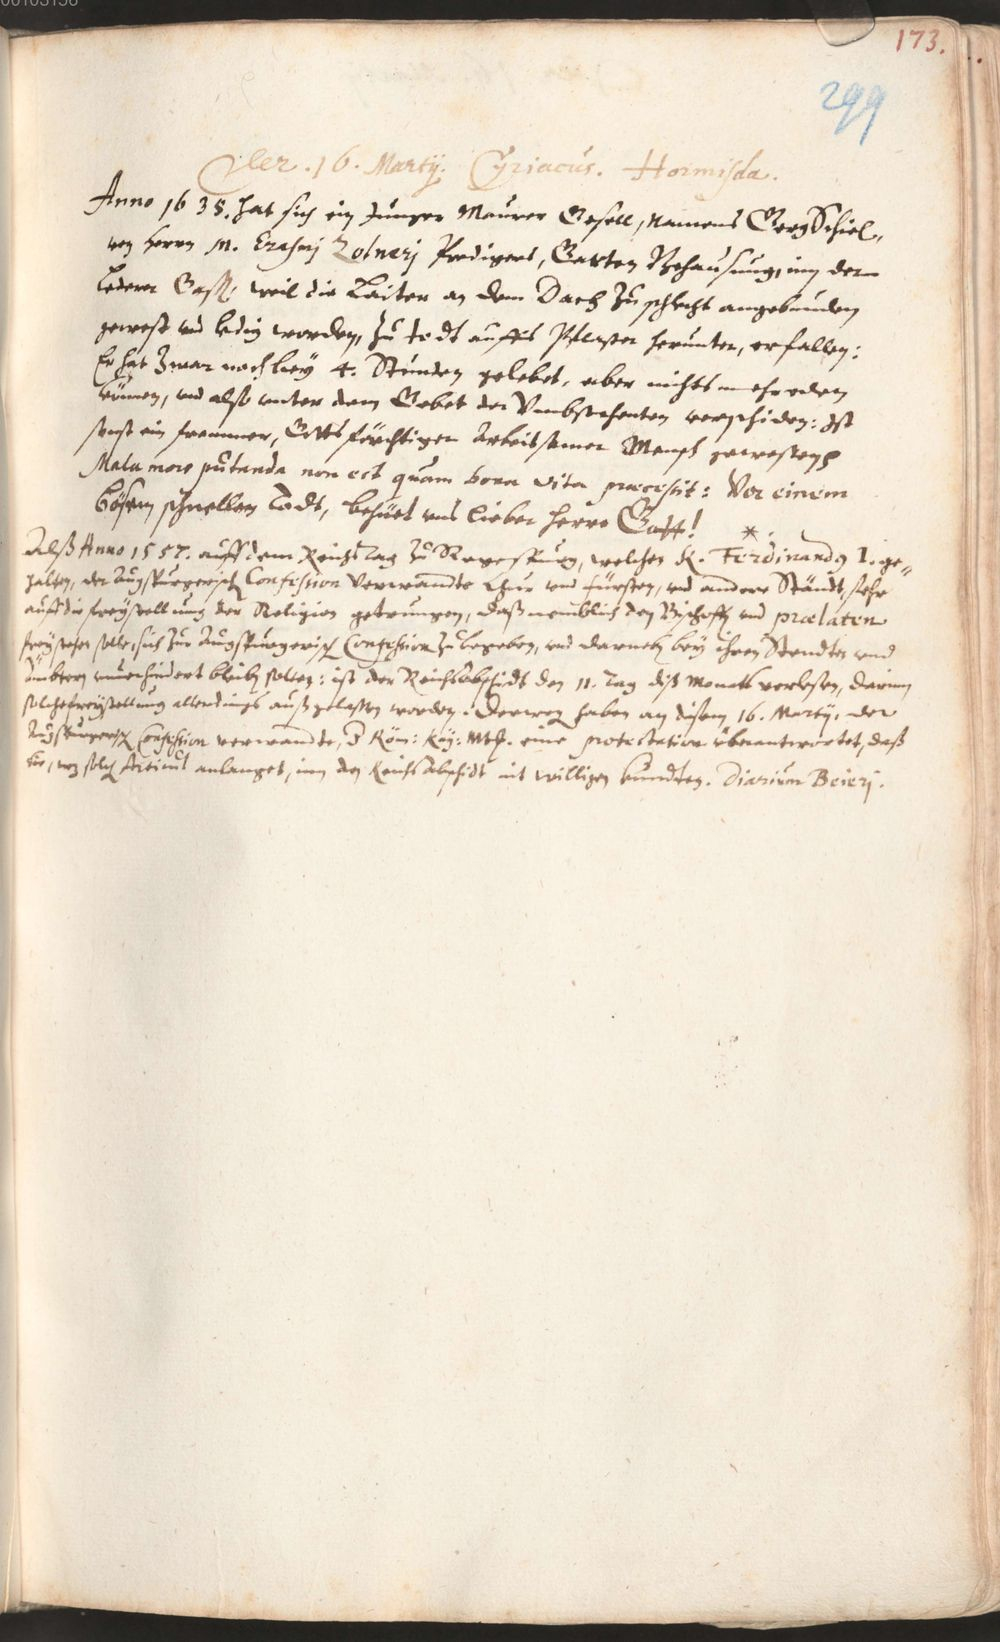 00103156
173.
299
Der .16. Martij. Cyriacus. Hormisda.
Anno 1638. hat sich ein Junger Maurer Gesell, Namens Georg Schiel,
von Herrn M. Erasmj Zolnerj Predigers, Garten Behausung, inn der
Lederer Gass, weil die Laiter an dem Dach zu schlecht angebunden
gewest und ledig worden, zu todt auffs Pflaster herunter, erfallen:
Er hat zwar noch bey 4. Stunden gelebet, aber nichts mehr reden
können, und also unter dem Gebet der Umbstehenten verschiden: Ist
sonst ein frommer, Gottsförchtiger Arbeitsamer Mensch gewesen
Mala mors putanda non est quam bona vita praecessit: Vor einem
bösen schnellen Todt, behüet uns lieber Herre Gott!
Alß Anno 1557. auff dem Reichs Tag zu Regenspurg, welchen K. Ferdinandus I. ge=
halten, der Augspurgerisch Confession Verwandte Chur und Fürsten, und andere Ständt, sehr
auff die freystellung der Religion getrungen, daß nemblich den Bischoffen und Praelaten
frey stehen solle, sich zur Augspurgerisch Confession zu begeben, und darneben bey ihren Stendten und
Ämbtern unverhindert bleiben solten: ist der Reichs Abschidt den 11. Tag diß Monats verlesen, darinn
solche freystellung allerdings außgelassen worden. Derwegen haben an disem 16. Martij, der
Augspurgerisch Confession verwandte, der Röm: Kay: Mtt. eine protestation uberantwortet, daß
sie, was solch Articul anlanget, inn den Reichs Abschidt nit willigen kundten. Diarium Beierj.